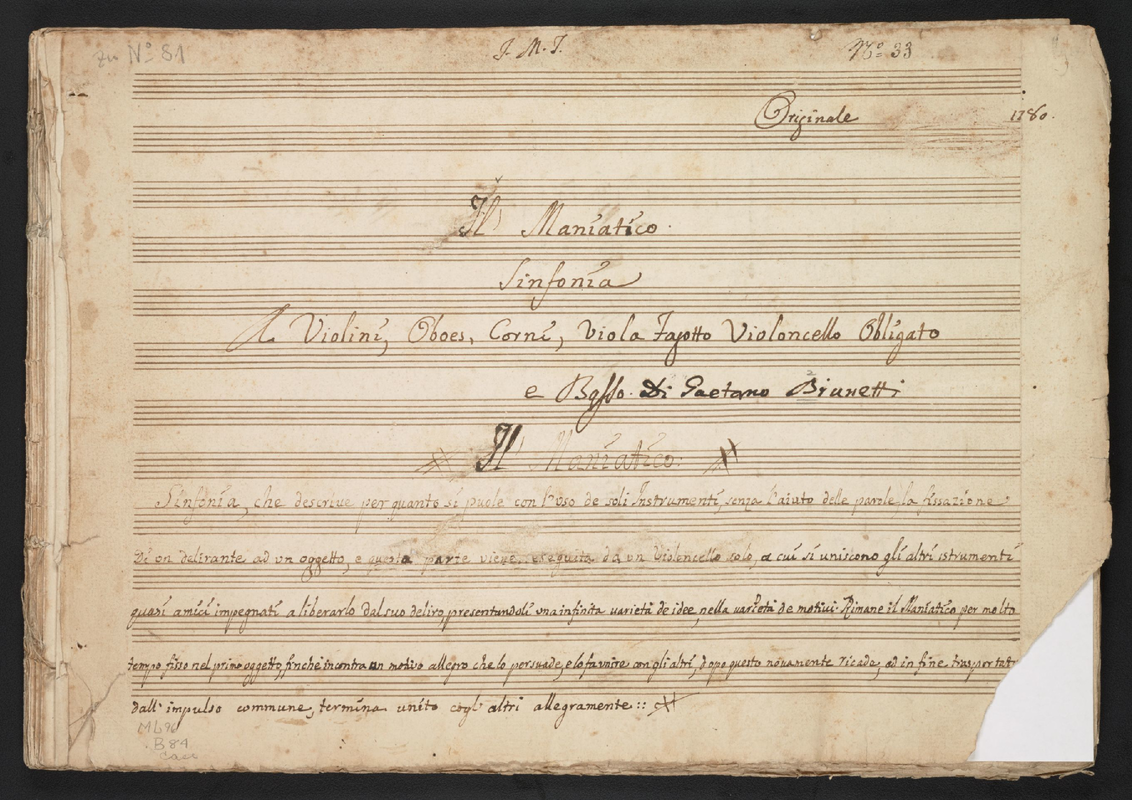 zu Nº 81
J. M. J.
Nº 33
Originale
1780.
Il Maniatico.
Sinfonia
A Violini, Oboes, Corni, Viola Fagotto Violoncello Obligato
e Basso. Di Gaetano Brunetti
Il Maniatico:
Sinfonia, che descrive per quanto si puole con l'uso de soli Instrumenti, senza l'aiuto delle parole, la fissazione
Di un delirante ad un oggetto, e questa parte viene eseguita da un Violoncello solo, a cui si uniscono gli altri istrumenti
quasi amici impegnati a liberarlo dal suo deliro, presentandoli una infinita varietà de idee, nella varietà de motivi. Rimane il Maniatico per molto
tempo fisso nel primo oggetto, finche incontra un motivo allegro che lo persuade, e lo fa unire con gli altri, dopo questo novamente ricade, ad in fine trasportato
dall' impulso commune, termina unito cogl' altri allegramente ::
M 696
B 84